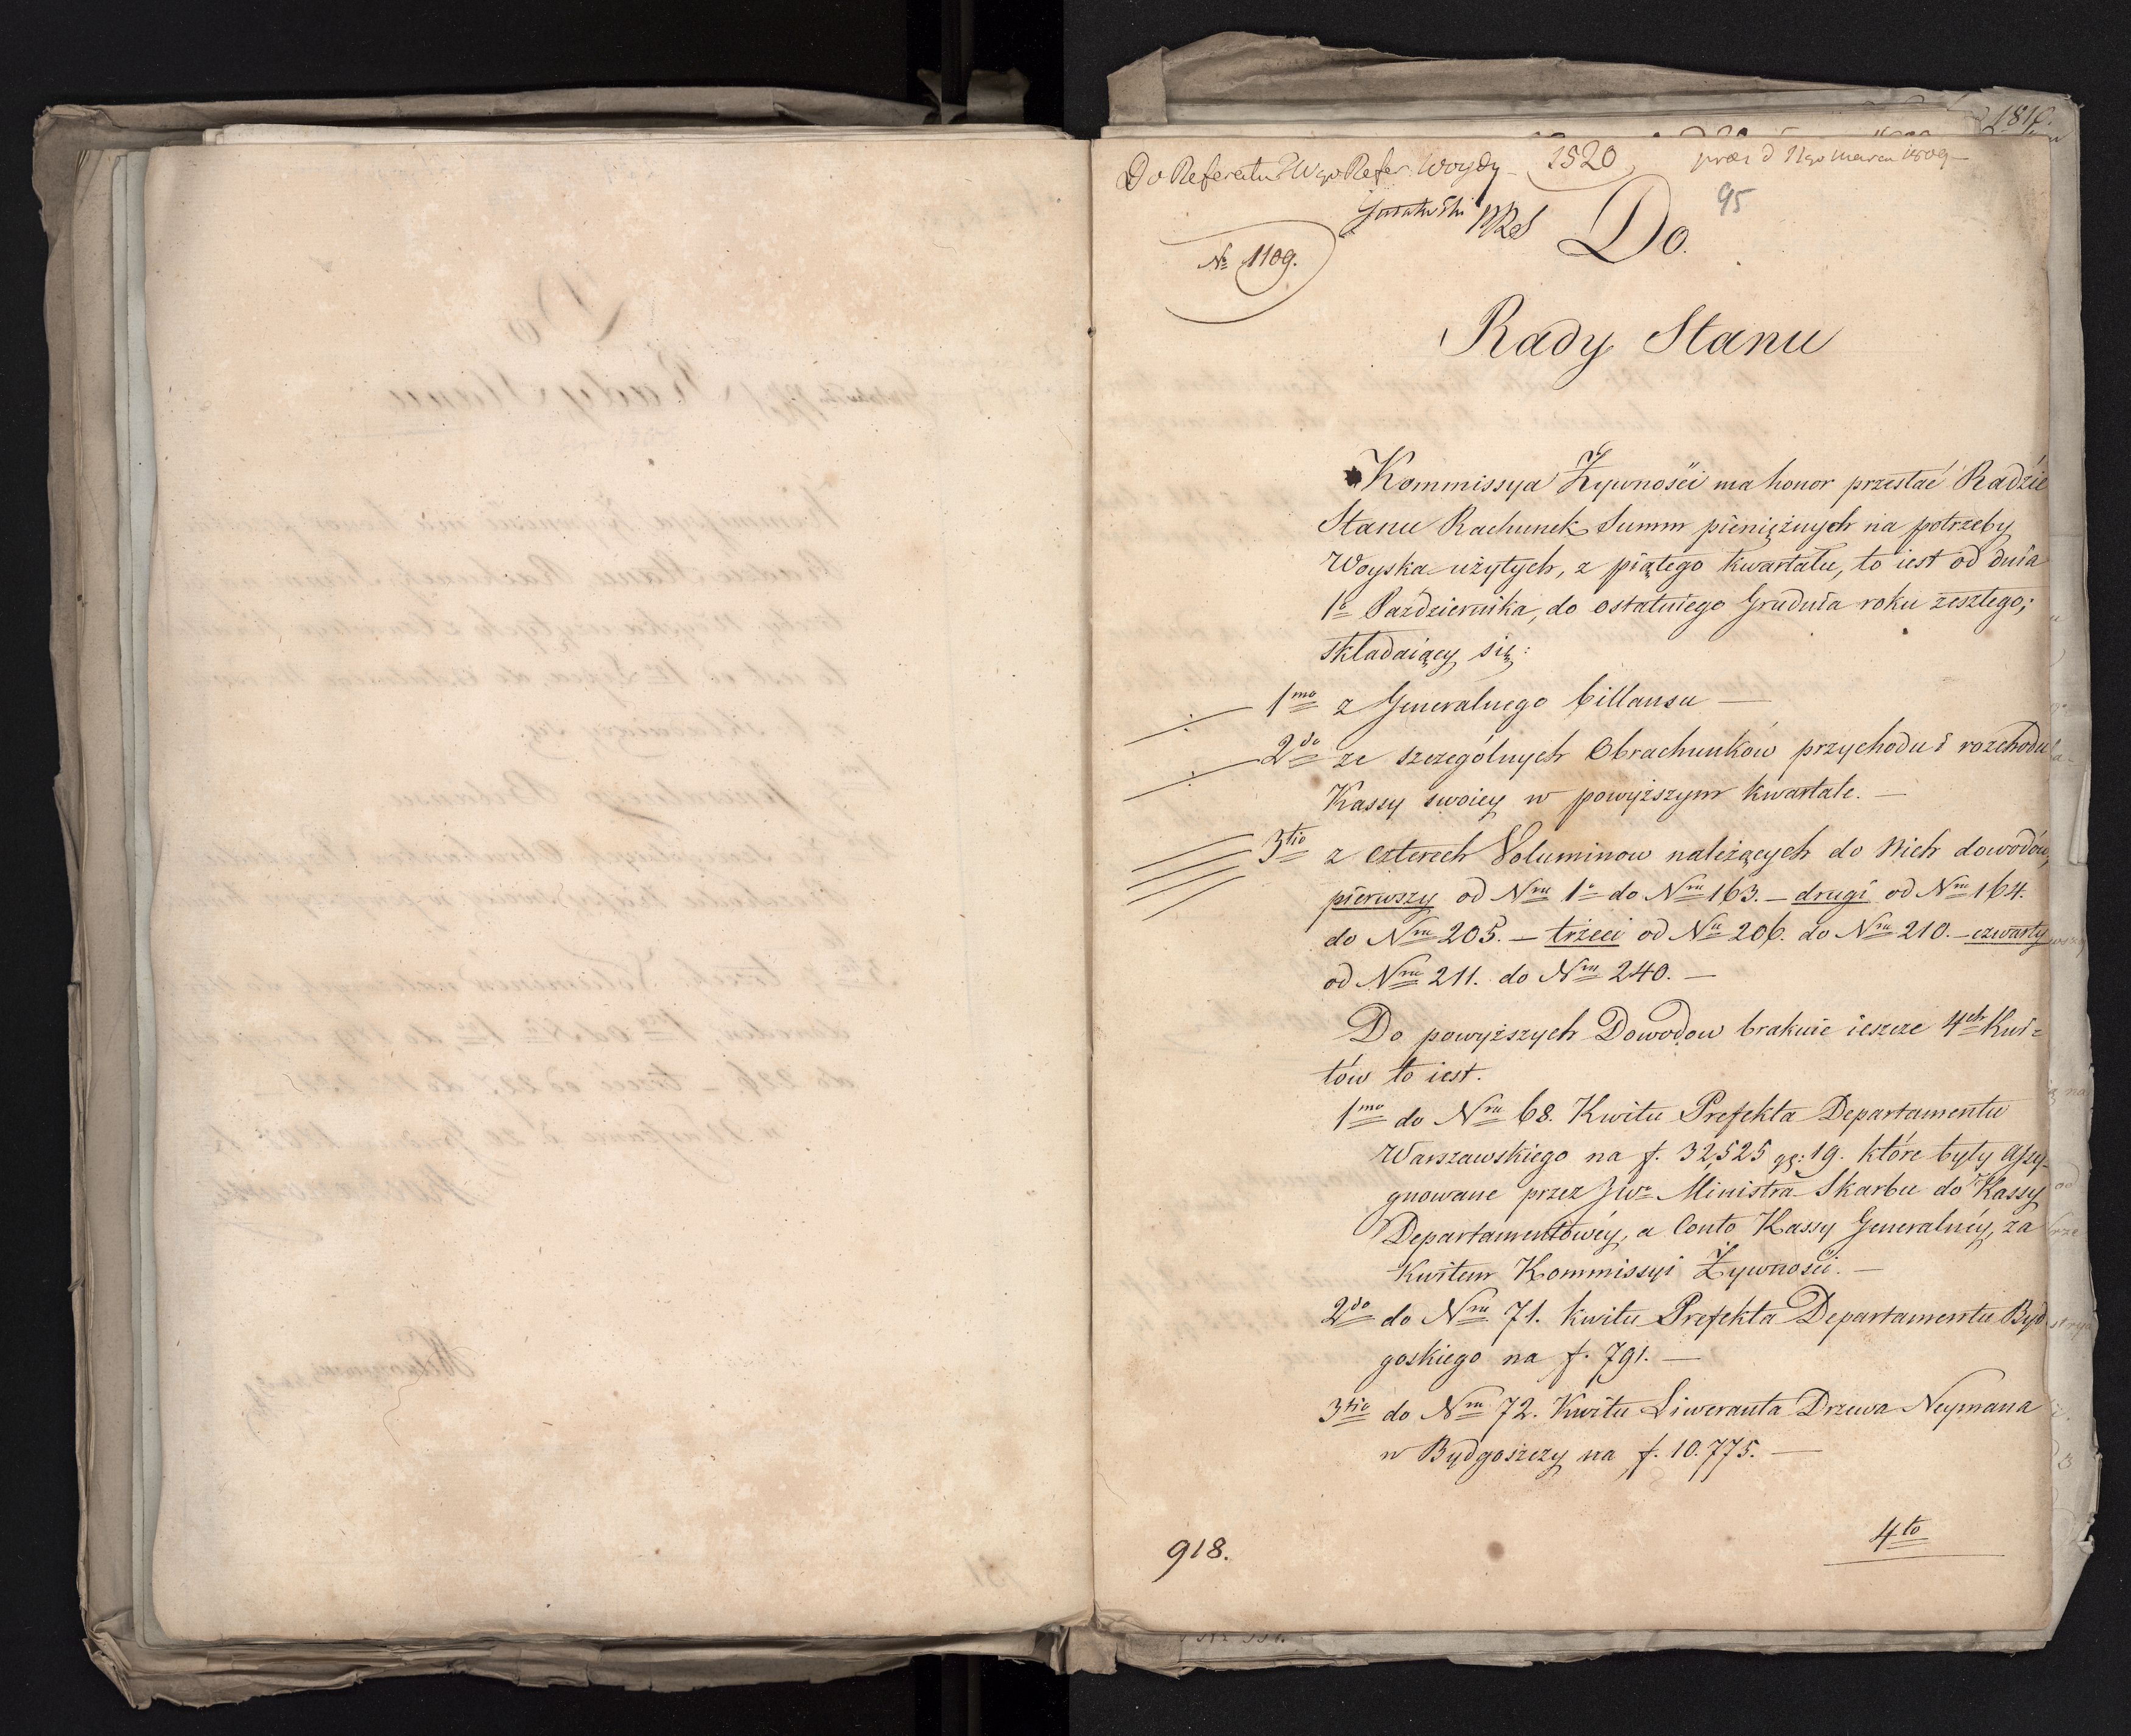 Do Referatu Wgo Refer. Woydy
1520
præs d 11go Marca 1809
95
Nro 1109.
Do.
Rady Stanu
Kommissya Żywnośći ma honor przesłać Radźie
Stanu Rachunek Summ pieniężnych na potrzeby
Woyska użytych, z piątego kwartału, to iest od dnia
1o Pazdziernika, do ostatniego Grudnia roku zeszłego;
składaiący się:
1mo z Generalnego billansu —
2do ze szczególnych Obrachunków przychodu i rozchodu
Kassy swoiey w powyższym kwartale. —
3tio z czterech Voluminow należących do Nich dowodów,
pierwszy od Nru 1o do Nru 163. — drugi od Nru 164.
do Nru 205. — trżeci od Nru 206. do Nru 210. — czwarty
od Nru 211. do Nru 240. —
Do powyższych Dowodow brakuie ieszcze 4ch Kwi=
tów to iest.
1mo do Nru 68. Kwitu Prefekta Departamentu
Warszawskiego na f. 32,525 gr: 19. które były assy-
gnowane przez JWo Ministra Skarbu do Kassy
Departamentowéy, a Conto Kassy Generalnéy, za
Kwitem Kommissyi Żywnośći. —
2do do Nru 71. kwitu Prefekta Departamentu Byd
goskiego na f. 791. —
3tio do Nru 72. Kwitu Liweranta Drzewa Neymana
w Bydgoszczy na f. 10.775. —
4to
918.